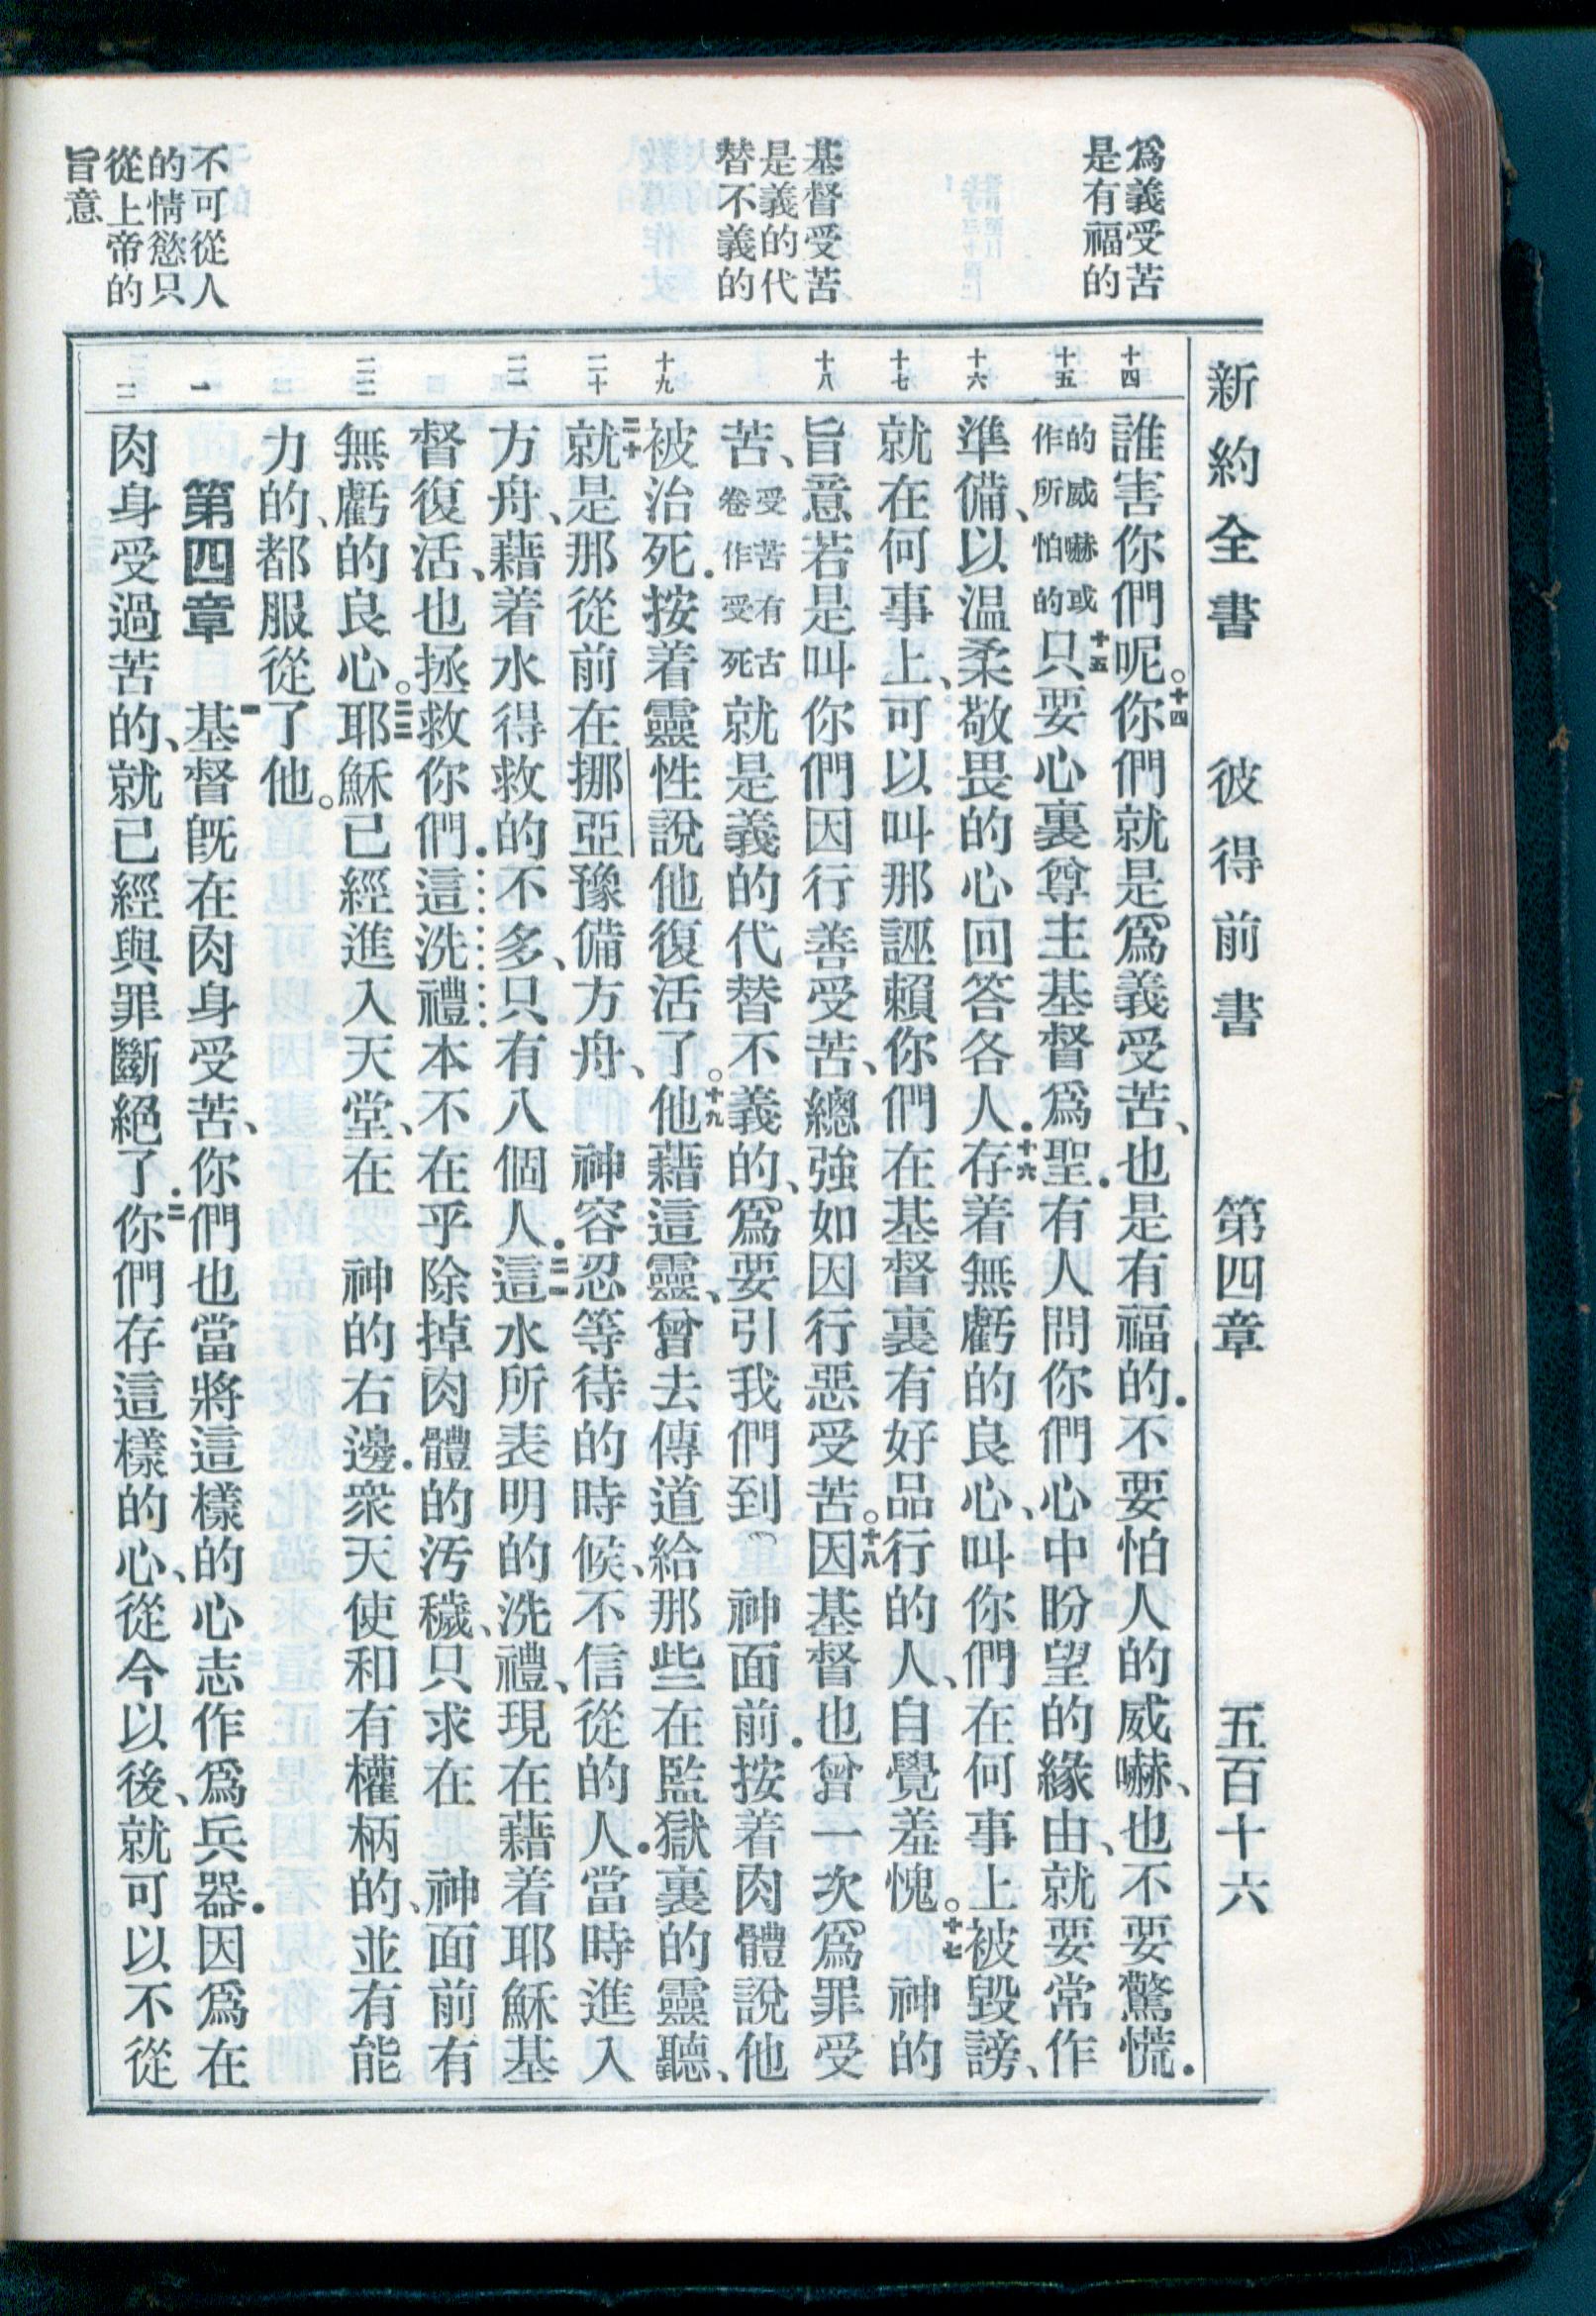 新約全書　彼得前書　第四章　五百十六
爲義受苦
是有福的
基督受苦
是義的代
替不義的
不可從人
的情慾只
從上帝的
旨意
十四
十五
十六
十七
十八
十九
二十
二一
二二
一
二
誰害你們呢。十四你們就是爲義受苦、也是有福的．不要怕人的威嚇、也不要驚慌．
的威嚇或作所怕的十五只要心裏尊主基督爲聖．有人問你們心中盼望的緣由、就要常作
準備、以温柔敬畏的心回答各人．十六存着無虧的良心、叫你們在何事上被毀謗、
就在何事上、可以叫那誣賴你們在基督裏有好品行的人、自覺羞愧。十七　神的
旨意若是叫你們因行善受苦、總強如因行惡受苦。十八因基督也曾一次爲罪受
苦、受苦有古卷作受死就是義的代替不義的、爲要引我們到　神面前．按着肉體說他
被治死．按着靈性說他復活了。十九他藉這靈、曾去傳道給那些在監獄裏的靈聽、
二十就是那從前在挪亞豫備方舟、　神容忍等待的時候、不信從的人．當時進入
方舟、藉着水得救的不多、只有八個人．二一這水所表明的洗禮、現在藉着耶穌基
督復活、也拯救你們．這洗禮本不在乎除掉肉體的污穢、只求在　神面前有
無虧的良心。二二耶穌已經進入天堂、在　神的右邊．衆天使和有權柄的、並有能
力的、都服從了他。
第四章　一基督旣在肉身受苦、你們也當將這樣的心志作爲兵器．因爲在
肉身受過苦的、就已經與罪斷絕了．二你們存這樣的心、從今以後、就可以不從